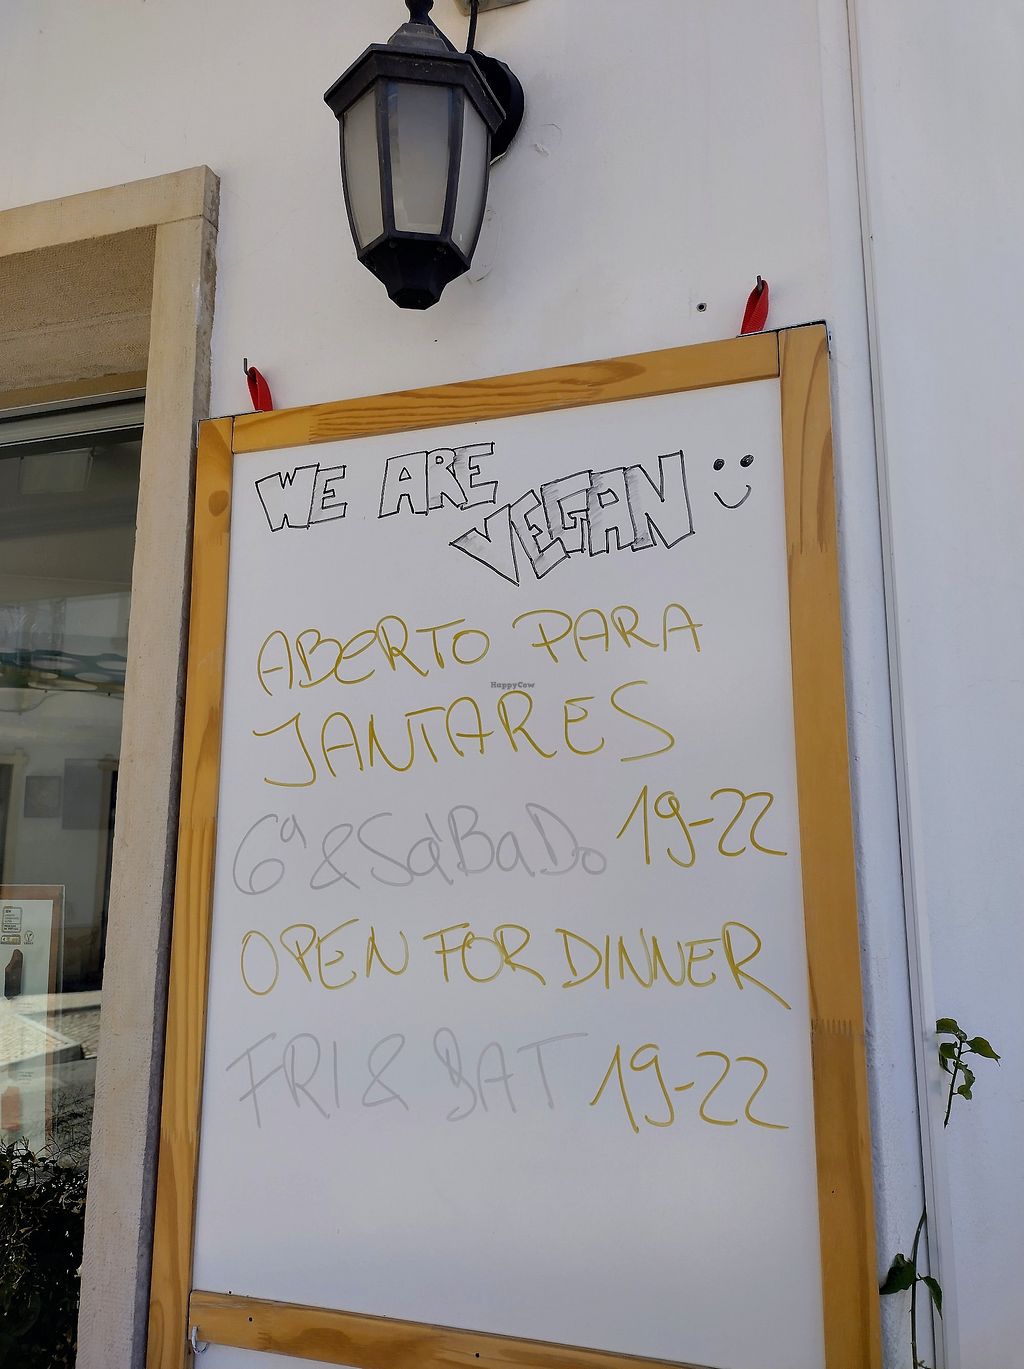 WE ARE
VEGAN
ABERTO PARA
HappyCow
JANTARES
6ª & SáBaDo 19-22
OPEN FOR DINNER
FRI & SAT 19-22